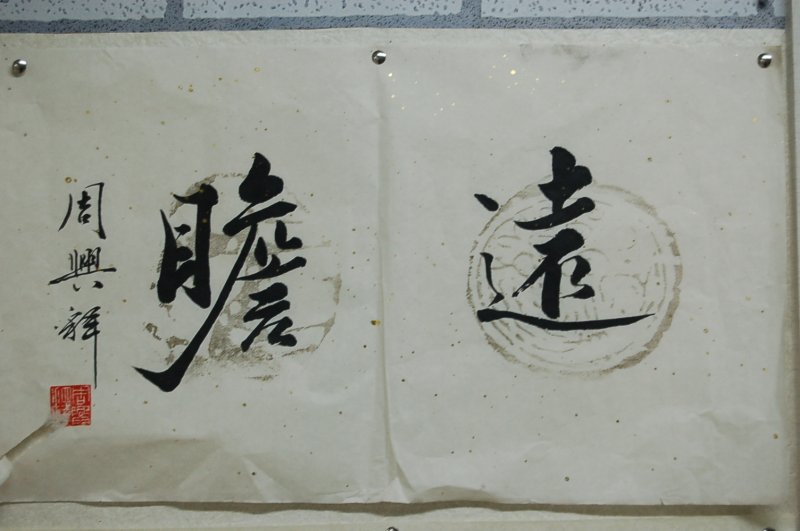 遠瞻
周興祥